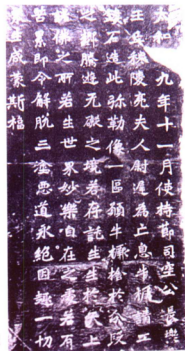 和九年十一月使持節司空公長樂
王丘穆陵亮夫人尉遲為亡息牛橛請工
鏤石造此弥勒像一區願牛橛捨於分段
之鄉騰遊无礙之境若存託生生於天上
諸佛之所若生世界妙樂自在之處若有
苦累即令解脫三塗惡道永絕因趣一切
眾生咸蒙斯福